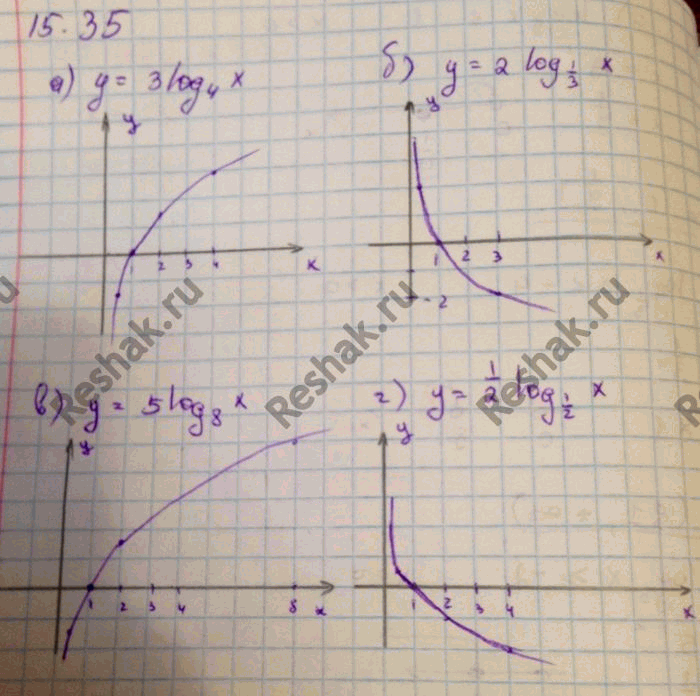 15.35
а) y = 3 log₄ x
б) y = 2 log_{1/3} x
y
1 2 3 4 x
y
1 2 3 x
-2
в) y = 5 log₈ x
г) y = 1/2 log_{1/2} x
y
1 2 3 4 8 x
y
1 2 3 4 x
Reshak.ru
Reshak.ru
Reshak.ru
Reshak.ru